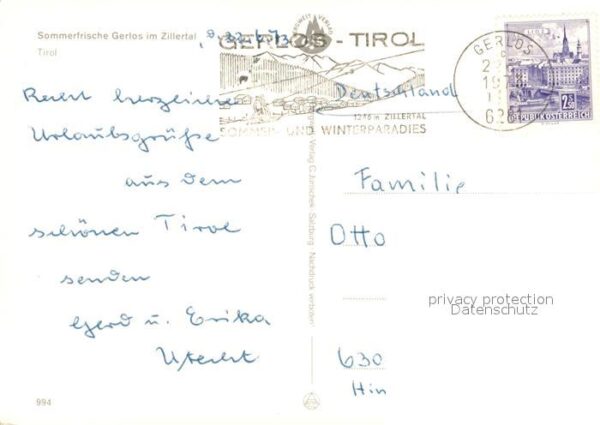 Sommerfrische Gerlos im Zillertal
Tirol
Recht herzliche
Urlaubsgrüße
aus dem
schönen Tirol
senden
Gerd u. Erika
Utecht
994
GERLOS - TIROL
1246 m ZILLERTAL
SOMMER- UND WINTERPARADIES
GERLOS
LINZ
2.50
REPUBLIK ÖSTERREICH
Deutschland
Familie
Otto
630
Hin
privacy protection
Datenschutz
Verlag C. Jurischek, Salzburg Nachdruck verboten!